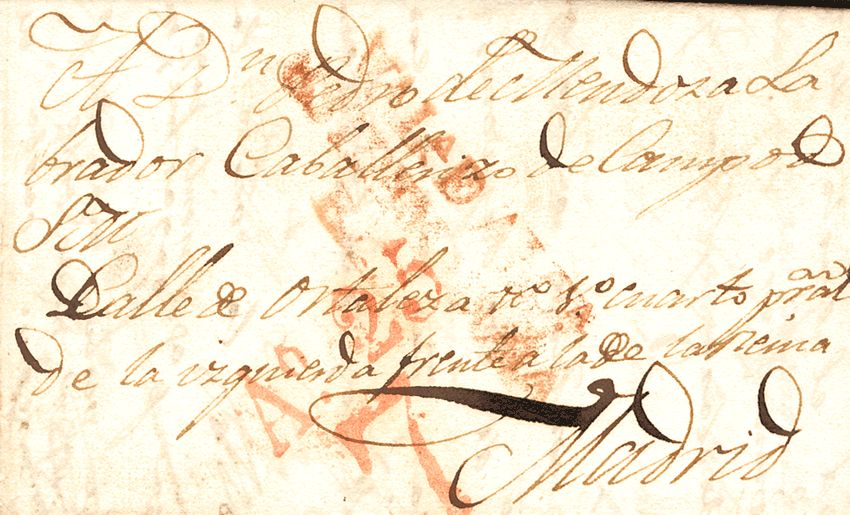 A Dn Pedro de Mendoza La
brador Caballerizo de Campo d
S M
Calle de Ortaleza no 1o cuarto pral
de la izquierda frente a la de la Reina
Madrid